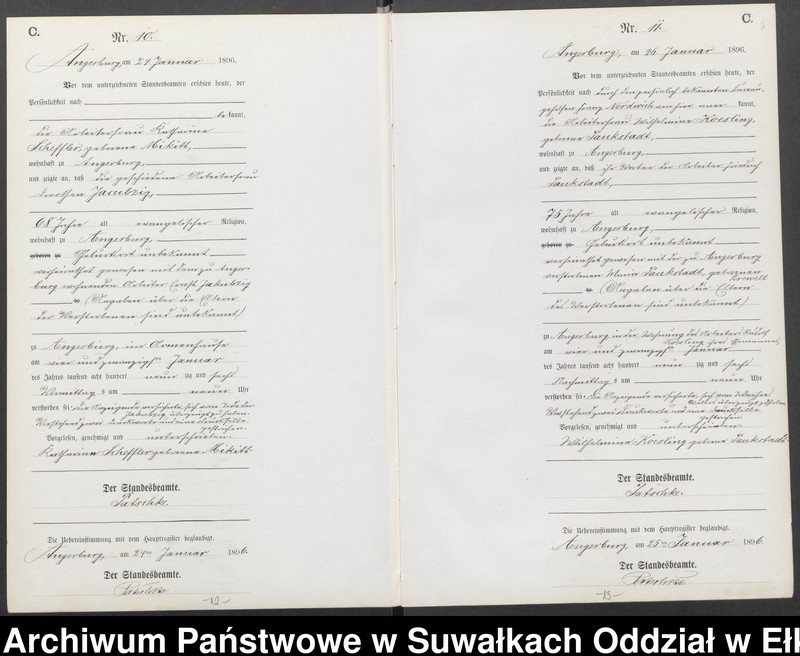 C.
Nr. 10.
Angerburg, am 24. Januar 1896.
Vor dem unterzeichneten Standesbeamten erschien heute, der
Persönlichkeit nach
bekannt,
die Arbeiterfrau Katharine
Scheffler, geborene Mikitt,
wohnhaft zu Angerburg,
und zeigte an, daß die geschiedene Arbeiterfrau
Dorothea Jacubzig,
68 Jahre alt evangelischer Religion,
wohnhaft zu Angerburg,
geboren zu Geburtsort unbekannt
verheirathet gewesen mit dem zu Anger-
burg wohnenden Arbeiter Ernst Jakubzig
(Angaben über die Eltern
der Verstorbenen sind unbekannt)
zu Angerburg, im Armenhause
am vier und zwanzigsten Januar
des Jahres tausend acht hundert neun zig und sechs
Vormittag s um neun Uhr
verstorben sei. Die Anzeigende versicherte, sich vom Tode der
Jakubzig überzeugt zu haben.
Vorstehend zwei Druckworte und eine Drucksilbe
gestrichen.
Vorgelesen, genehmigt und unterschrieben
Katharine Scheffler geborene Mikitt
Der Standesbeamte.
Patschke.
Die Uebereinstimmung mit dem Hauptregister beglaubigt.
Angerburg, am 24ten Januar 1896.
Der Standesbeamte.
Patschke
-12-
C.
Nr. 11.
Angerburg, am 25. Januar 1896.
Vor dem unterzeichneten Standesbeamten erschien heute, der
Persönlichkeit nach durch den persönlich bekannten Bureau-
gehilfen Franz Nordwich von hier aner kannt,
die Arbeiterfrau Wilhelmine Koesling,
geborene Laukstadt,
wohnhaft zu Angerburg,
und zeigte an, daß ihr Vater der Arbeiter Friedrich
Laukstadt,
75 Jahre alt evangelischer Religion,
wohnhaft zu Angerburg,
geboren zu Geburtsort unbekannt
verheirathet gewesen mit der zu Angerburg
verstorbenen Maria Laukstadt, geborenen
(Angaben über die Eltern
des Verstorbenen sind unbekannt)
zu Angerburg in der Wohnung des Arbeiters Rudolf
Koesling, ihres Ehemannes,
am vier und zwanzigsten Januar
des Jahres tausend acht hundert neun zig und sechs
Nachmittag s um neun Uhr
verstorben sei. Die Anzeigende versicherte, sich vom Tode ihres
Vaters überzeugt zu haben.
Vorstehend zwei Druckworte und eine Drucksilbe
gestrichen
Vorgelesen, genehmigt und unterschrieben
Wilhelmine Koesling geborne Laukstadt
Der Standesbeamte.
Patschke.
Die Uebereinstimmung mit dem Hauptregister beglaubigt.
Angerburg, am 25ten Januar 1896
Der Standesbeamte.
Patschke
-13-
Archiwum Państwowe w Suwałkach Oddział w Ełk